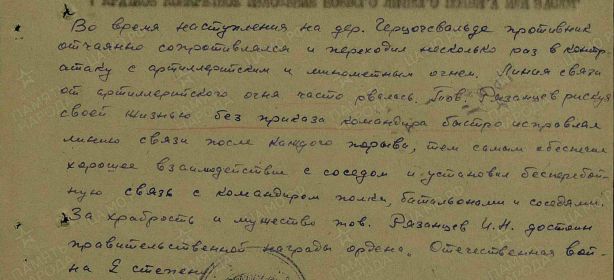 Во время наступления на дер. Герцогсвальде противник
отчаянно сопротивлялся и переходил несколько раз в контр
атаку с артиллерийским и минометным огнем. Линия связи
от артиллерийского огня часто рвалась. Тов. Рязанцев рискуя
своей жизнью без приказа командира быстро исправлял
линию связи после каждого порыва, тем самым обеспечил
хорошее взаимодействие с соседом и установил бесперебой-
ную связь с командиром полка, батальонами и соседями.
За храбрость и мужество тов. Рязанцев И.Н. достоин
правительственной награды ордена „Отечественная вой-
на 2 степени